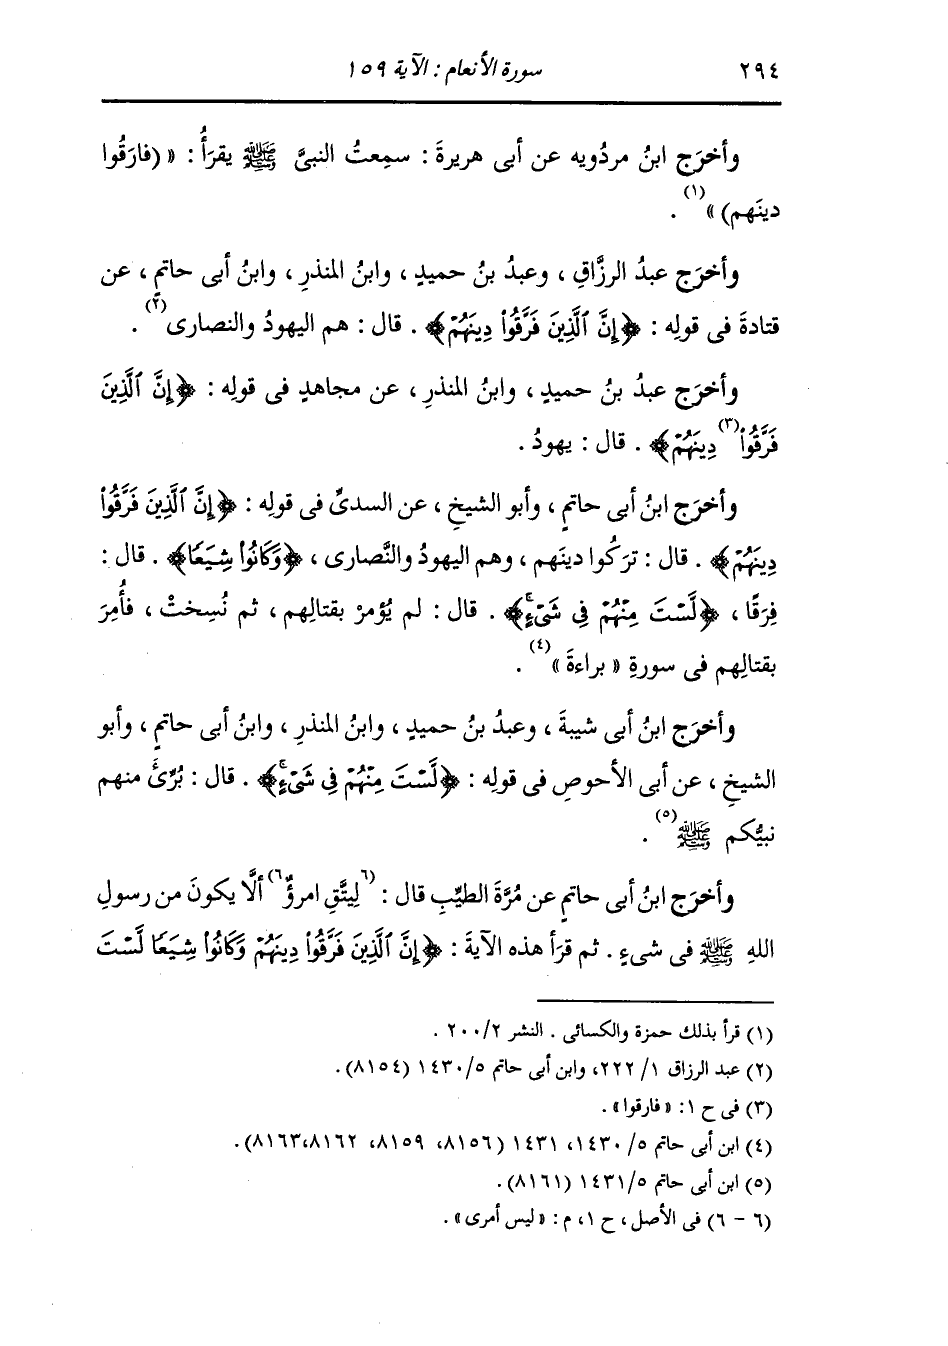 ٢٩٤ سورة الأنعام : الآية ١٥٩
وأخرَج ابنُ مردُويه عن أبى هريرةَ : سمِعتُ النبىَّ ﷺ يقرَأُ : « (فارَقُوا
دينَهم) »(١) .
وأخرَج عبدُ الرزَّاقِ ، وعبدُ بنُ حميدٍ ، وابنُ المنذرِ ، وابنُ أبى حاتمٍ ، عن
قتادةَ فى قولِه : ﴿إِنَّ ٱلَّذِينَ فَرَّقُوا۟ دِينَهُمْ﴾ . قال : هم اليهودُ والنصارى(٢) .
وأخرَج عبدُ بنُ حميدٍ ، وابنُ المنذرِ ، عن مجاهدٍ فى قولِه : ﴿إِنَّ ٱلَّذِينَ
فَرَّقُوا۟(٣) دِينَهُمْ﴾ . قال : يهودُ .
وأخرَج ابنُ أبى حاتمٍ ، وأبو الشيخِ ، عن السدىِّ فى قولِه : ﴿إِنَّ ٱلَّذِينَ فَرَّقُوا۟
دِينَهُمْ﴾ . قال : ترَكُوا دينَهم ، وهم اليهودُ والنَّصارى ، ﴿وَكَانُوا۟ شِيَعًا﴾ . قال :
فِرَقًا ، ﴿لَّسْتَ مِنْهُمْ فِى شَىْءٍ ۚ﴾ . قال : لم يُؤمرْ بقتالِهم ، ثم نُسِختْ ، فأُمِرَ
بقتالِهم فى سورةِ « براءةَ »(٤) .
وأخرَج ابنُ أبى شيبةَ ، وعبدُ بنُ حميدٍ ، وابنُ المنذرِ ، وابنُ أبى حاتمٍ ، وأبو
الشيخِ ، عن أبى الأحوصِ فى قولِه : ﴿لَّسْتَ مِنْهُمْ فِى شَىْءٍ ۚ﴾ . قال : بُرِّئَ منهم
نبيُّكم ﷺ(٥) .
وأخرَج ابنُ أبى حاتمٍ عن مُرَّةَ الطيِّبِ قال : (٦لِيتَّقِ امرؤٌ٦) ألَّا يكونَ من رسولِ
اللهِ ﷺ فى شىءٍ . ثم قرَأ هذه الآيةَ : ﴿إِنَّ ٱلَّذِينَ فَرَّقُوا۟ دِينَهُمْ وَكَانُوا۟ شِيَعًا لَّسْتَ
(١) قرأ بذلك حمزة والكسائى . النشر ٢/ ٢٠٠ .
(٢) عبد الرزاق ١/ ٢٢٢، وابن أبى حاتم ٥/ ١٤٣٠ (٨١٥٤).
(٣) فى ح ١: « فارقوا» .
(٤) ابن أبى حاتم ٥/ ١٤٣٠، ١٤٣١ (٨١٥٦، ٨١٥٩، ٨١٦٢،٨١٦٣).
(٥) ابن أبى حاتم ٥/ ١٤٣١ (٨١٦١).
(٦ - ٦) فى الأصل، ح ١، م : « ليس أمرى» .